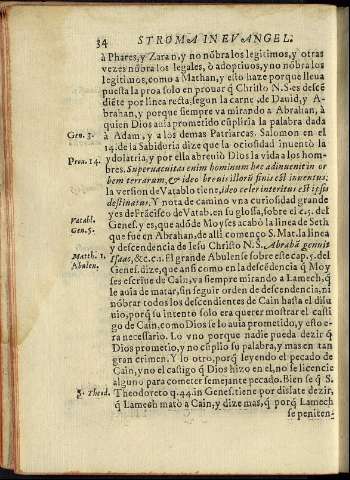 34 STROMA IN EVANGEL.
à Phares, y Zaran, y no nõbra los legitimos, y otras
vezes nõbra los legales, ò adoptiuos, y no nõbra los
legitimos, como a Mathan, y esto haze porque lleua
puesta la proa solo en prouar q̃ Christo N.S. es descẽ
diẽte por linea recta, segun la carne, de Dauid, y A-
brahan, y porque siempre va mirando a Abrahan, à
quien Dios auia prometido cũplirla la palabra dada
Gen. 3. à Adam, y a los demas Patriarcas. Salomon en el
14. de la Sabiduria dize que la ociosidad inuentò la
Prou. 14. ydolatria, y por ella abreuiò Dios la vida a los hom-
bres. Superuacuitas enim hominum hæc adinuenit in or
bem terrarum, & ideo breuis illorũ finis est inuentus;
la version de Vatablo tiene, ideo celer interitus est ipsis
destinatus. Y nota de camino vna curiosidad grande
yes de Frãcisco de Vatab. en su glossa, sobre el c.5. del
Vatabl. Genes. y es, que adõde Moyses acabò la linea de Seth
Gen. 5. que fue en Abrahan, de alli començò S. Mat. la linea
y descendencia de Iesu Christo N.S. Abrahã genuit
Matth. 1. Isaac, &c. c. 1. El grande Abulense sobre este cap. 5. del
Abulen. Genes. dize, que ansi como en la descẽdencia q̃ Moy
ses escriue de Cain, va siempre mirando a Lamech, q̃
le auia de matar, sin seguir orden de descendencia, ni
nõbrar todos los descendientes de Cain hasta el dilu
uio, porq̃ su intento solo era querer mostrar el casti
go de Cain, como Dios se lo auia prometido, y esto e-
ra necessario. Lo vno porque nadie pueda dezir q̃
Dios prometio, y no cũplio su palabra, y mas en tan
gran crimen. Y lo otro, porq̃ leyendo el pecado de
Cain, y no el castigo q̃ Dios hizo en el, no se licencie
alguno para cometer semejante pecado. Bien se q̃ S.
S. Theod. Theodoreto q. 44. in Genes. tiene por dislate dezir,
q̃ Lamech matò a Cain, y dize mas, q̃ porq̃ Lamech
se peniten-